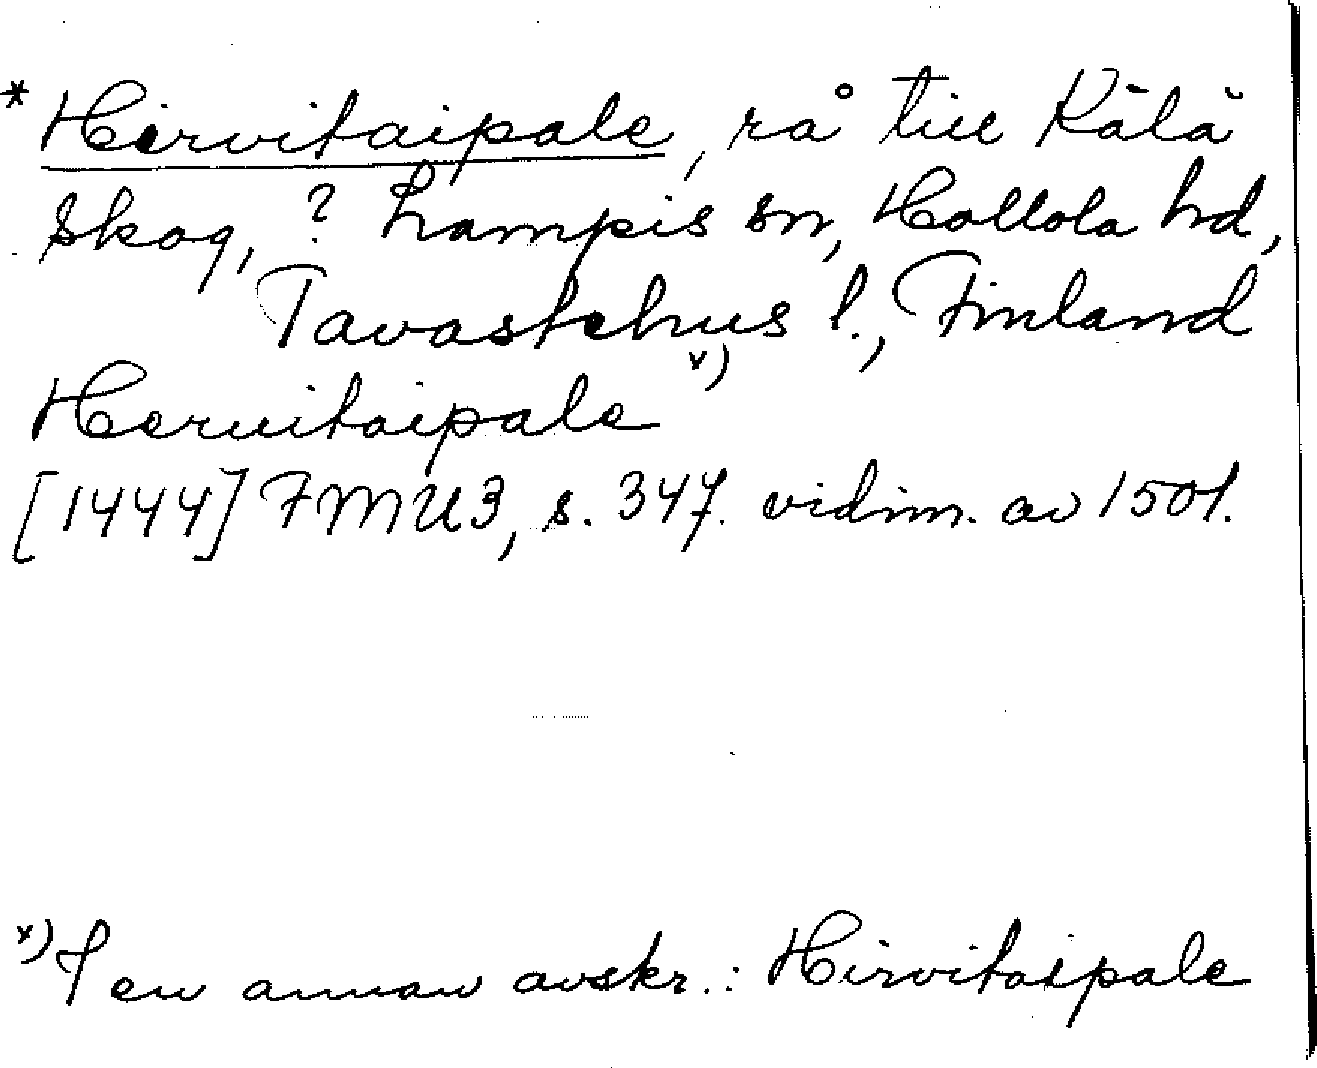 * Hirvitaipale, rå till Kälä
skog, ? Lampis sn, Hollola hd,
Tavastehus l., Finland
Heruitaipale x)
[1444] FMU3, s. 347. vidim. av 1501.
x) I en annan avskr.: Hirvitaipale